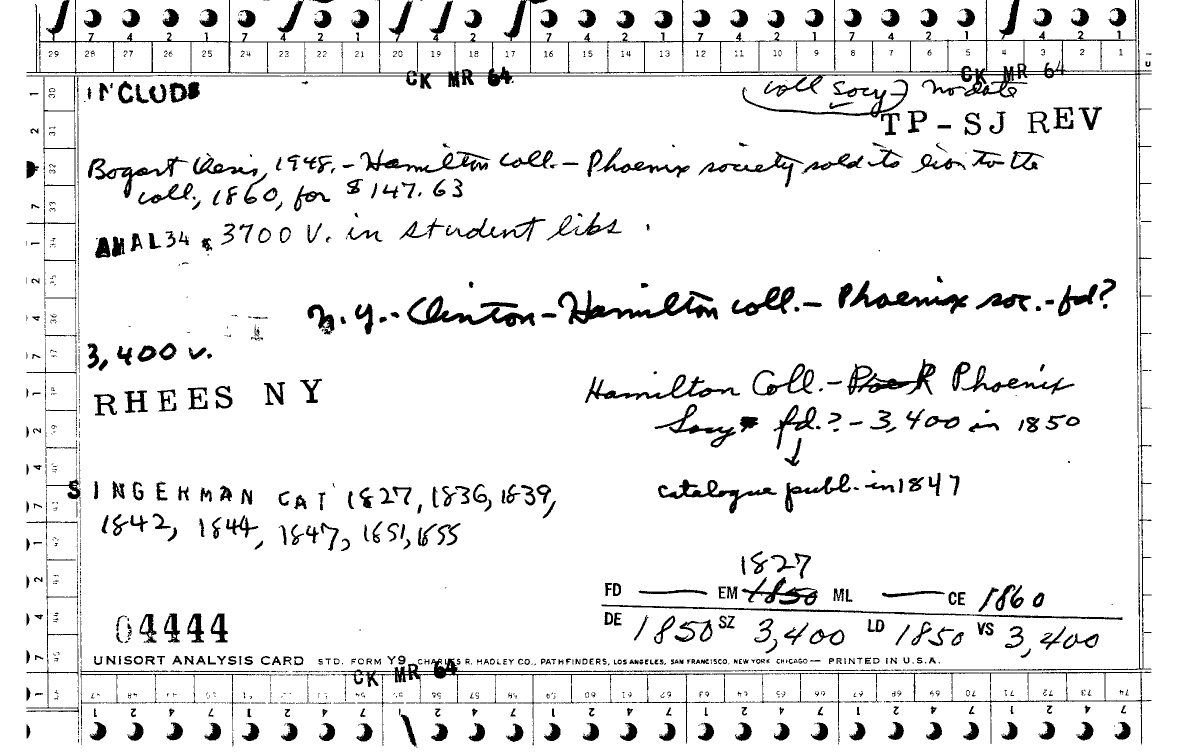 7 4 2 1 7 4 2 1 7 4 2 1 7 4 2 1 7 4 2 1 7 4 2 1 7 4 2 1
29 28 27 26 25 24 23 22 21 20 19 18 17 16 15 14 13 12 11 10 9 8 7 6 5 4 3 2 1
CK MR 64 CK MR 64
INCLUDE (coll socy) no date
TP-SJ REV
Bogart thesis, 1948. - Hamilton coll. - Phoenix society sold its lib to the
coll., 1860, for $147.63
ANAL34 3700 V. in student libs.
N.Y. - Clinton - Hamilton coll. - Phoenix soc. - fd?
3,400 v.
RHEES NY
Hamilton Coll. - Phoenix
Socy fd.? - 3,400 in 1850
↓
catalogue publ. in 1847
SINGERMAN CAT 1827, 1836, 1839,
1842, 1844, 1847, 1851, 1855
1827
FD — EM 1850 ML — CE 1860
DE 1850 SZ 3,400 LD 1850 VS 3,400
04444
UNISORT ANALYSIS CARD STD. FORM Y9 CHARLES R. HADLEY CO., PATHFINDERS, LOS ANGELES, SAN FRANCISCO, NEW YORK CHICAGO — PRINTED IN U.S.A.
CK MR 64